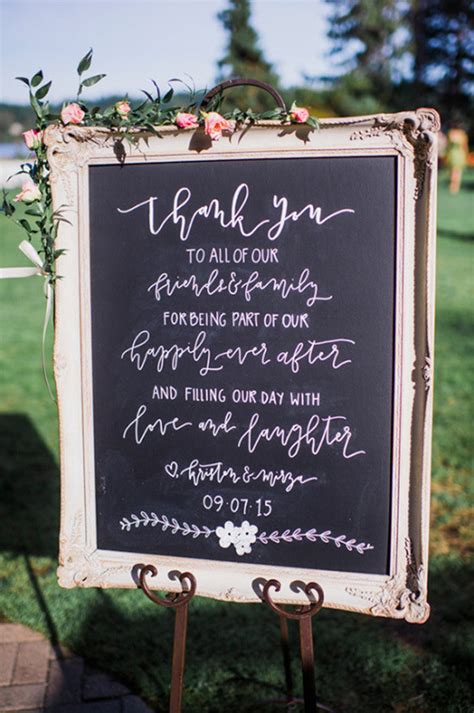 thank you
TO ALL OF OUR
friends & family
FOR BEING PART OF OUR
happily ever after
AND FILLING OUR DAY WITH
love and laughter
♡ kristen & mirza
09.07.15